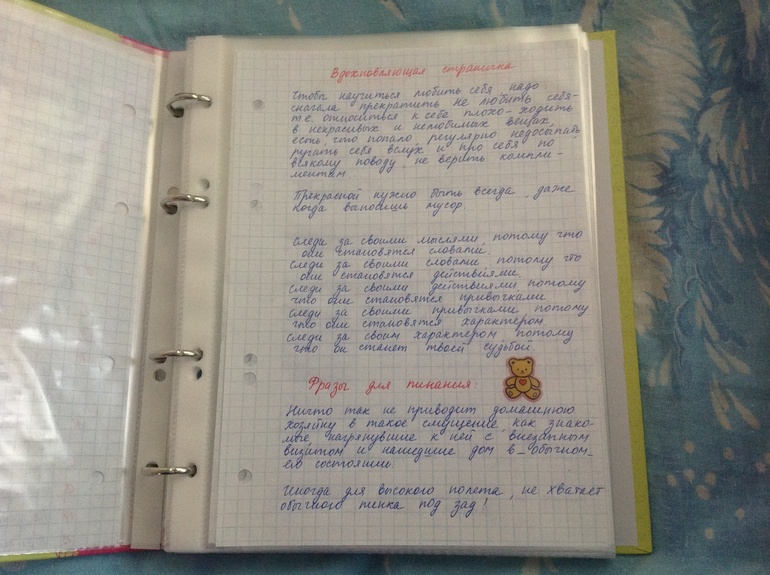 Вдохновляющая страничка
Чтобы научиться любить себя, надо
сначала прекратить не любить себя-
т.е. относиться к себе плохо- ходить
в некрасивых и нелюбимых вещах,
есть что попало, регулярно недосыпать,
ругать себя вслух и про себя по
всякому поводу, не верить компли-
ментам
Прекрасной нужно быть всегда, даже
когда выносишь мусор.
Следи за своими мыслями, потому что
они становятся словами.
Следи за своими словами потому что
они становятся действиями.
Следи за своими действиями потому
что они становятся привычками
Следи за своими привычками потому
что они становятся характером
Следи за своим характером потому
что он станет твоей судьбой
Фразы для пинания:
Ничто так не приводит домашнюю
хозяйку в такое смущение, как знако-
мые, нагрянувшие к ней с внезапным
визитом и нашедшие дом в обычном
его состоянии.
Иногда для высокого полета, не хватает
обычного пинка под зад!